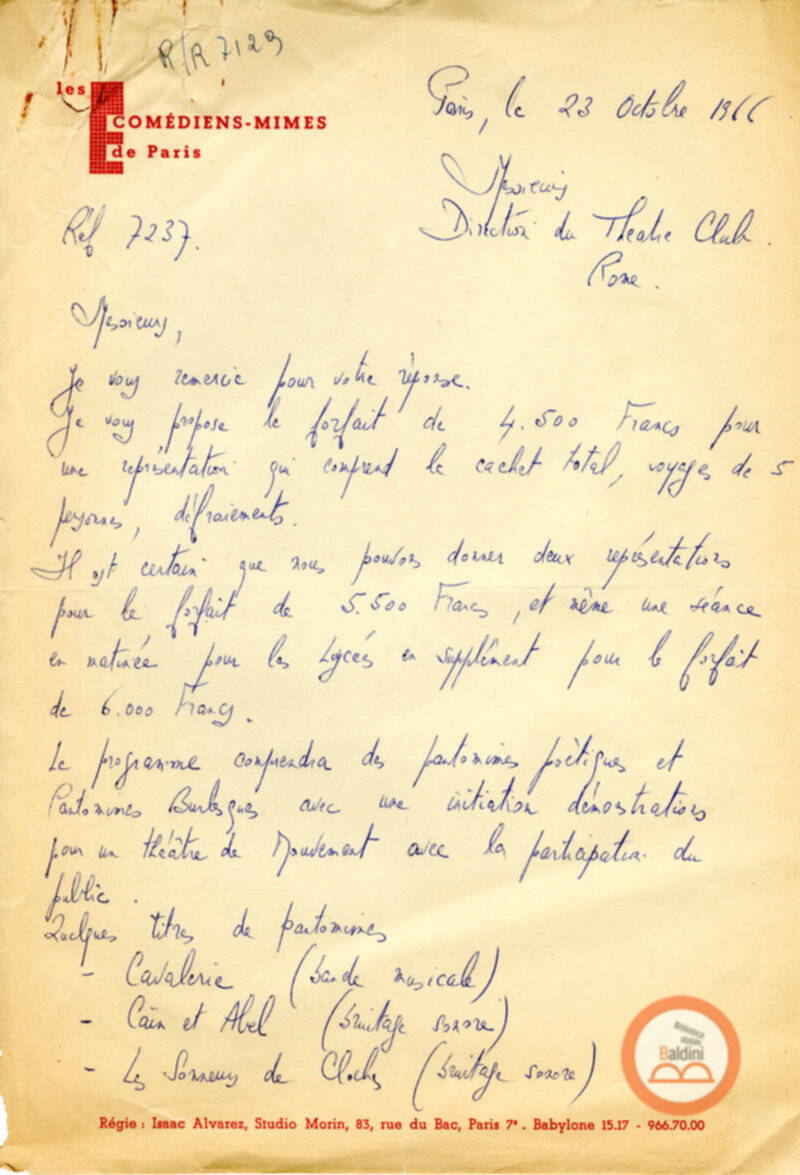 R/R 7129
les
COMÉDIENS-MIMES
de Paris
Paris, le 23 Octobre 1966
Messieurs
Direction du Theatre Club.
Rome.
Réf 7237.
Messieurs,
Je vous remercie pour votre réponse.
Je vous propose le forfait de 4.500 Francs pour
une représentation qui comprend le cachet total, voyages de 5
personnes, défraiements.
Il est certain que nous pouvons donner deux représentations
pour le forfait de 5.500 Francs, et même une séance
en matinée pour les Lycées en supplément pour le forfait
de 6.000 Francs.
Le programme comprendra des pantomimes poètiques et
Pantomimes Burlesques avec une initiation démonstrations
pour un théâtre de Mouvement avec la participation du
public.
Quelques titres de pantomimes
- Cavalerie (bande musicale)
- Caïn et Abel (bruitage sonore)
- Les Sonneurs de Cloches (bruitage sonore)
Biblioteca
statale
Baldini
Régie : Isaac Alvarez, Studio Morin, 83, rue du Bac, Paris 7e. Babylone 15.17 - 966.70.00